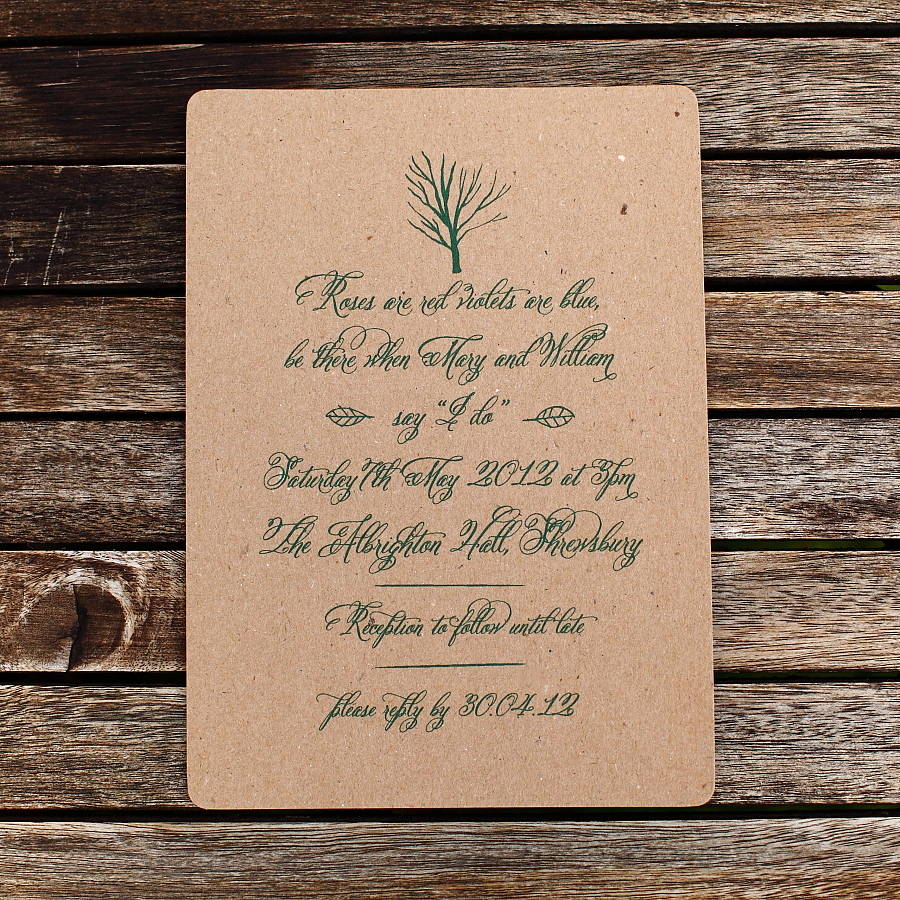 Roses are red violets are blue,
be there when Mary and William
say “I do”
Saturday 7th May 2012 at 3pm
The Albrighton Hall, Shrewsbury
Reception to follow until late
please reply by 30.04.12